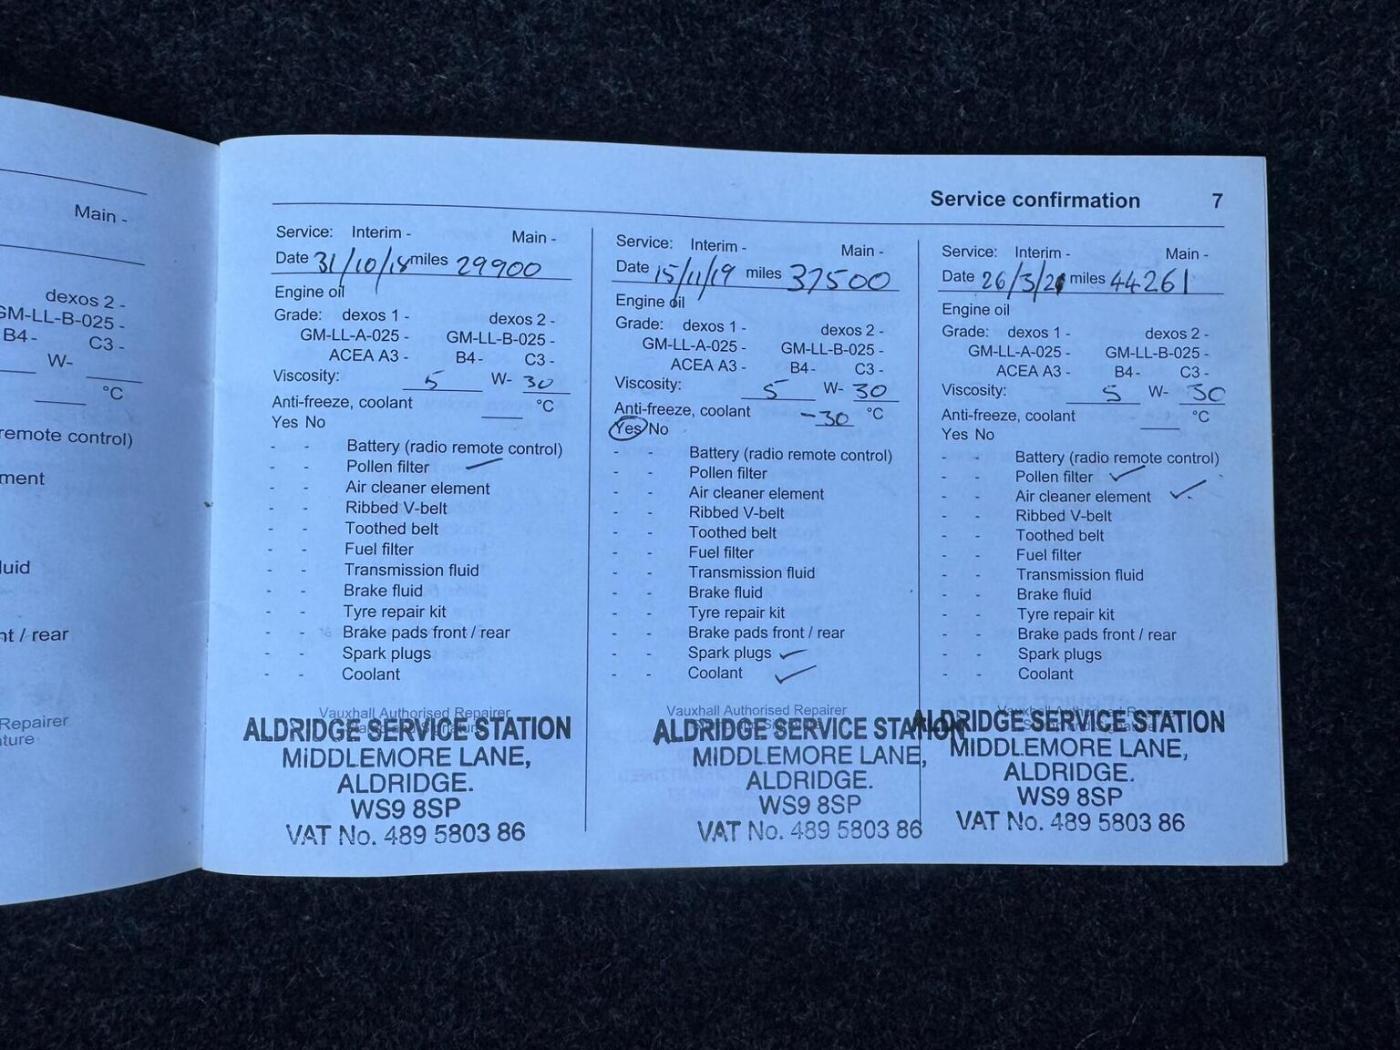 Main -
dexos 2 -
GM-LL-B-025 -
B4- C3 -
W-
°C
remote control)
ment
luid
nt / rear
Repairer
ature
Service confirmation 7
Service: Interim - Main -
Date 31/10/18 miles 29900
Engine oil
Grade: dexos 1 - dexos 2 -
GM-LL-A-025 - GM-LL-B-025 -
ACEA A3 - B4- C3 -
Viscosity: 5 W- 30
Anti-freeze, coolant °C
Yes No
- - Battery (radio remote control)
- - Pollen filter ✓
- - Air cleaner element
- - Ribbed V-belt
- - Toothed belt
- - Fuel filter
- - Transmission fluid
- - Brake fluid
- - Tyre repair kit
- - Brake pads front / rear
- - Spark plugs
- - Coolant
Vauxhall Authorised Repairer
ALDRIDGE SERVICE STATION
MIDDLEMORE LANE,
ALDRIDGE.
WS9 8SP
VAT No. 489 5803 86
Service: Interim - Main -
Date 15/11/19 miles 37500
Engine oil
Grade: dexos 1 - dexos 2 -
GM-LL-A-025 - GM-LL-B-025 -
ACEA A3 - B4- C3 -
Viscosity: 5 W- 30
Anti-freeze, coolant -30 °C
Yes No
- - Battery (radio remote control)
- - Pollen filter
- - Air cleaner element
- - Ribbed V-belt
- - Toothed belt
- - Fuel filter
- - Transmission fluid
- - Brake fluid
- - Tyre repair kit
- - Brake pads front / rear
- - Spark plugs ✓
- - Coolant ✓
Vauxhall Authorised Repairer
ALDRIDGE SERVICE STATION
MIDDLEMORE LANE,
ALDRIDGE.
WS9 8SP
VAT No. 489 5803 86
Service: Interim - Main -
Date 26/3/21 miles 44261
Engine oil
Grade: dexos 1 - dexos 2 -
GM-LL-A-025 - GM-LL-B-025 -
ACEA A3 - B4- C3 -
Viscosity: 5 W- 30
Anti-freeze, coolant °C
Yes No
- - Battery (radio remote control)
- - Pollen filter ✓
- - Air cleaner element ✓
- - Ribbed V-belt
- - Toothed belt
- - Fuel filter
- - Transmission fluid
- - Brake fluid
- - Tyre repair kit
- - Brake pads front / rear
- - Spark plugs
- - Coolant
Vauxhall Authorised Repairer
ALDRIDGE SERVICE STATION
MIDDLEMORE LANE,
ALDRIDGE.
WS9 8SP
VAT No. 489 5803 86